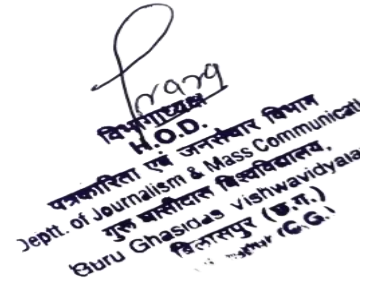 विभागाध्यक्ष
H.O.D.
पत्रकारिता एवं जनसंचार विभाग
Deptt. of Journalism & Mass Communicati
गुरू घासीदास विश्वविद्यालय,
Guru Ghasidas vishwavidyala
बिलासपुर (छ.ग.)
(C.G.)